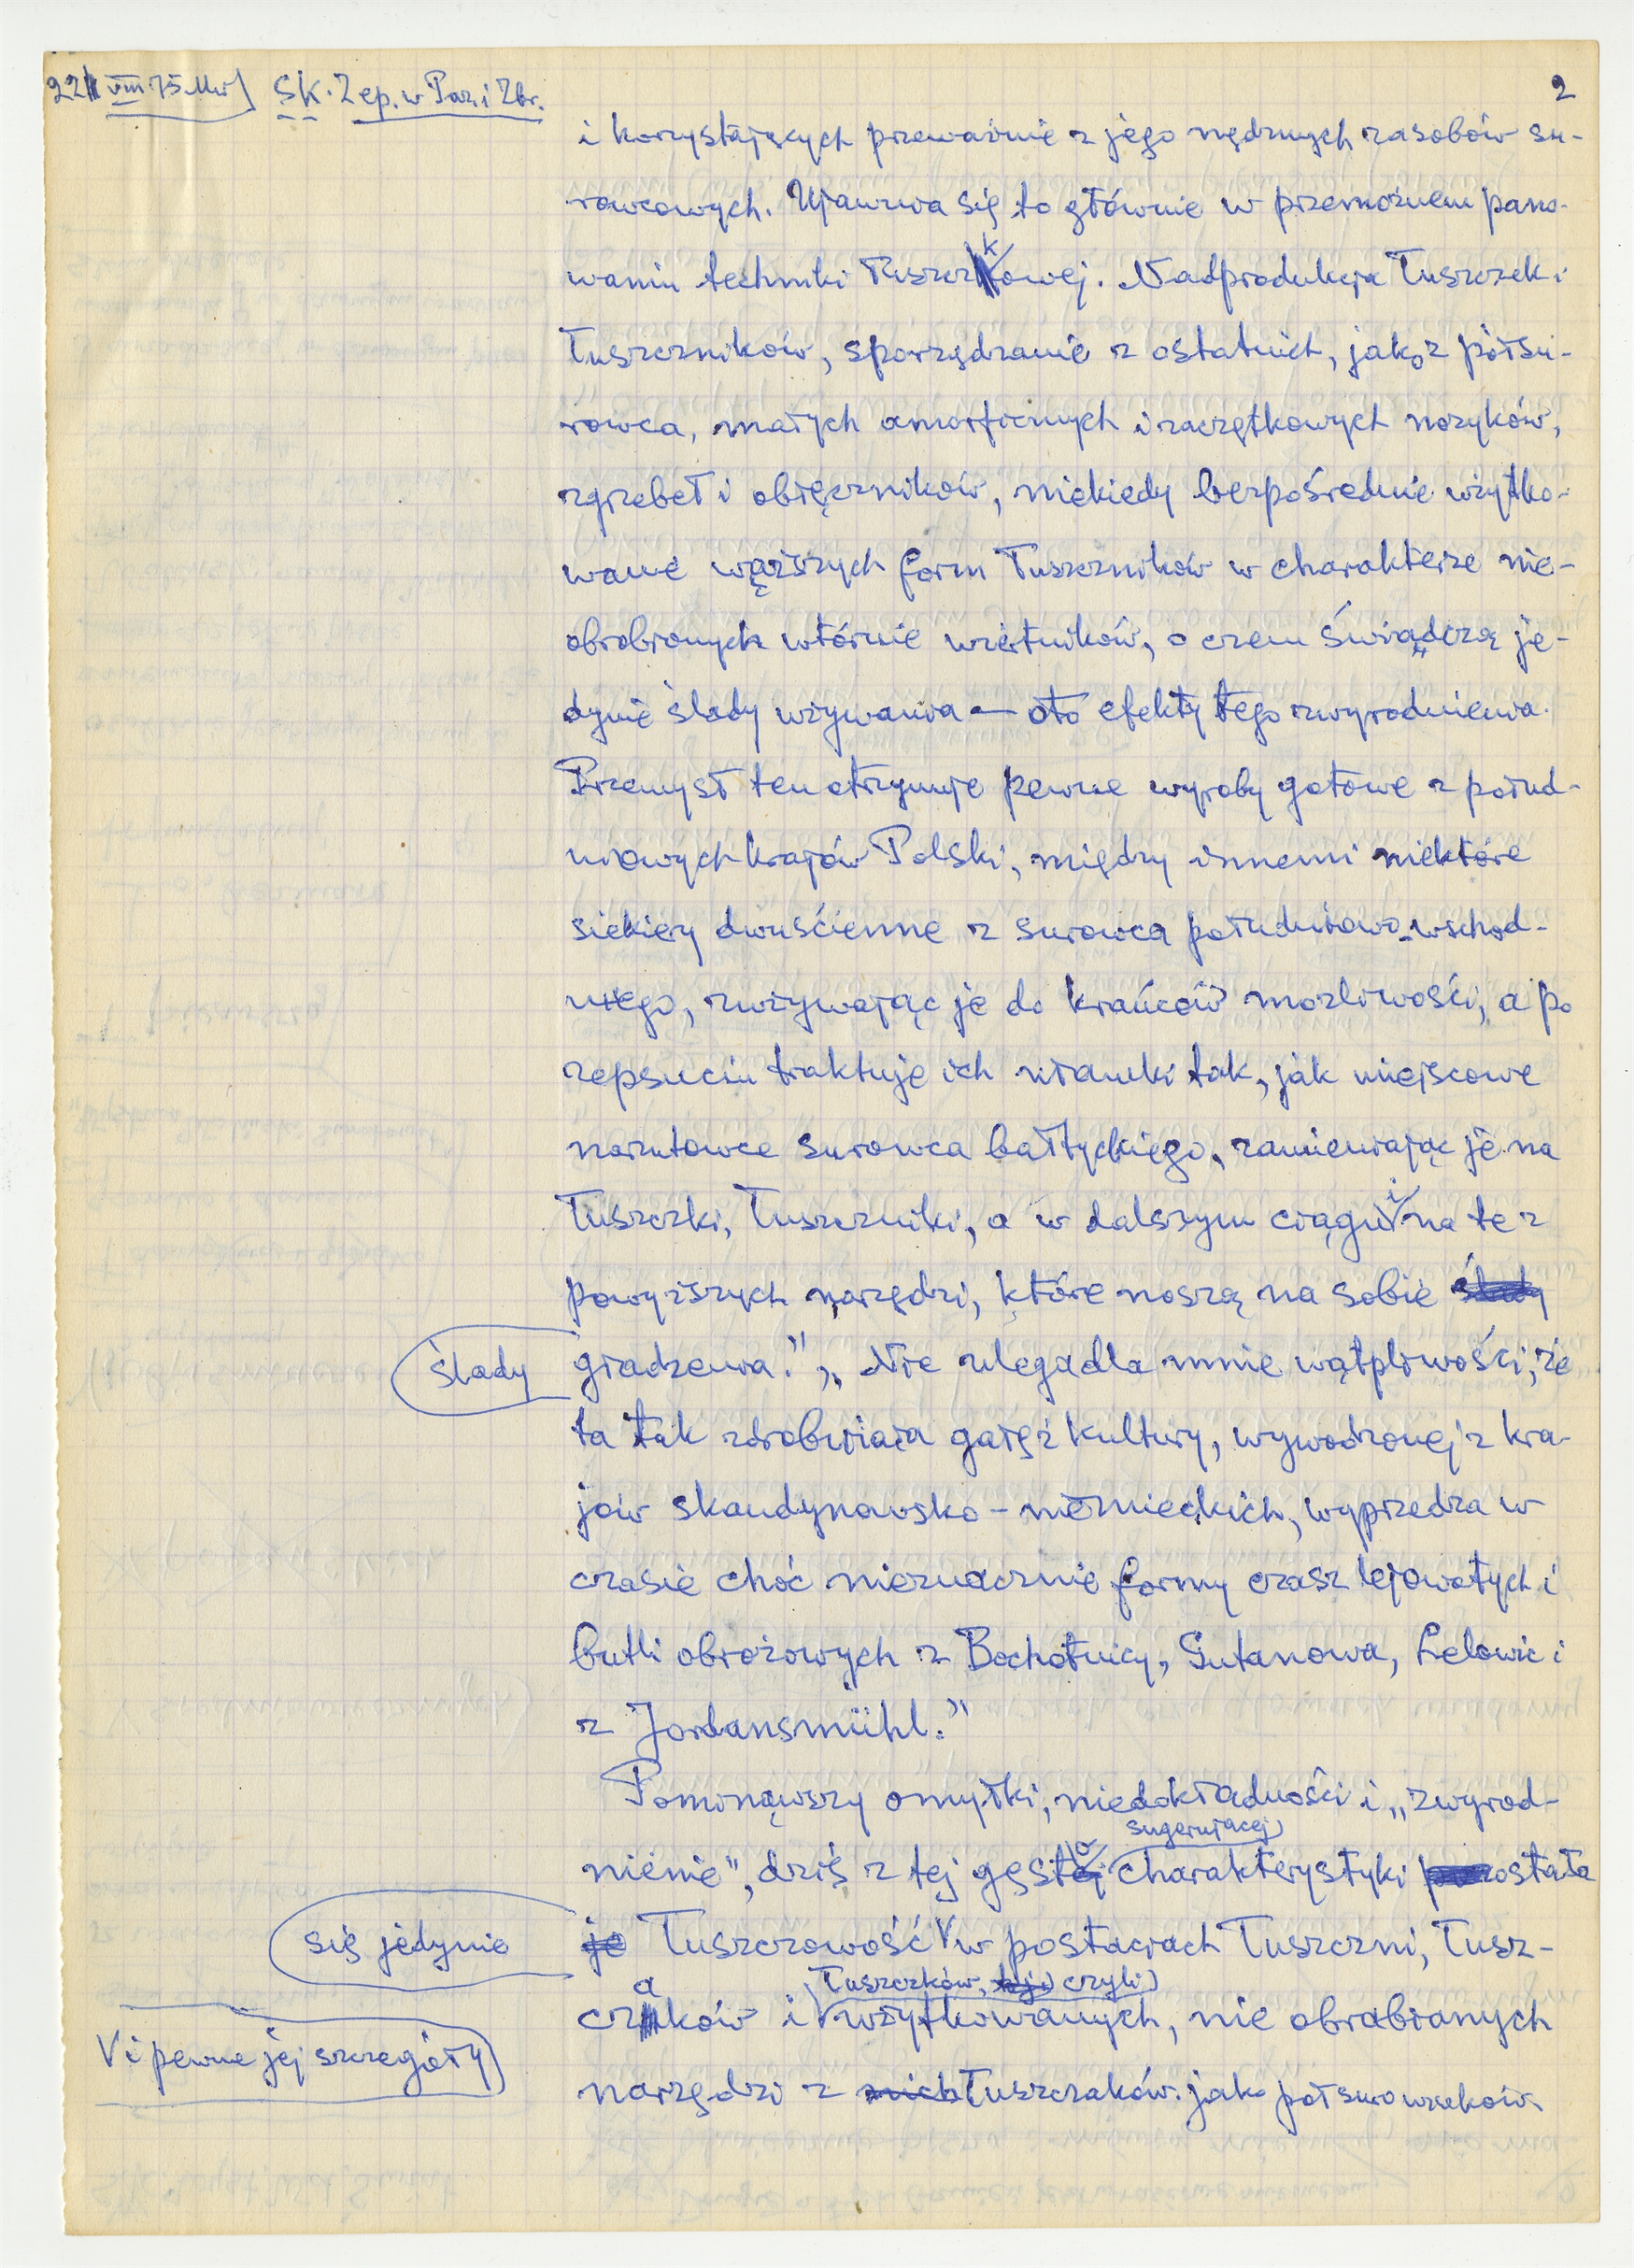 22 VIII 75 Mw] SK. Zep. w Par. i Zbr.
2
i korzystających przeważnie z jego nędznych zasobów su-
rowcowych. Ujawnia się to głównie w przemożnem pano-
waniu techniki łuszczkowej. Nadprodukcja łuszczek i
łuszczników, sporządzanie z ostatnich, jako z półsu-
rowca, małych amorficznych i zaczątkowych nożyków,
zgrzebeł i obłęczników, niekiedy bezpośrednie użytko-
wanie węższych form łuszczników w charakterze nie-
obrobionych wtórnie wiertników, o czem świadczą je-
dynie ślady używania — oto efekty tego zwyrodnienia.
Przemysł ten otrzymuje pewne wyroby gotowe z połud-
niowych krajów Polski, między innemi niektóre
siekiery dwuścienne z surowca południowo-wschod-
niego, zużywając je do krańców możliwości, a po
zepsuciu traktuje ich ułamki tak, jak miejscowe
narzutowce surowca bałtyckiego, zamieniając je na
łuszczki, łuszczniki, a w dalszym ciągu i na te z
powyższych narzędzi, które noszą na sobie ślady
ślady
gładzenia." „Nie ulega dla mnie wątpliwości, że
ta tak zdrobniała gałęź kultury, wywodzonej z kra-
jów skandynawsko-niemieckich, wyprzedza w
czasie choć nieznacznie formy czasz lejowatych i
butli obrożowych z Bochotnicy, Gutanowa, Lelowic i
z Jordansmühl."
Pominąwszy omyłki, niedokładności i „zwyrod-
sugerującej
nienie", dziś z tej gęsto charakterystyki ostała
się jedynie
je łuszczowość V w postaciach łuszczni, łusz-
łuszczków, czyli
czaków i użytkowanych, nie obrabianych
V i pewne jej szczegóły
narzędzi z nich łuszczaków jako półsurowiaków.